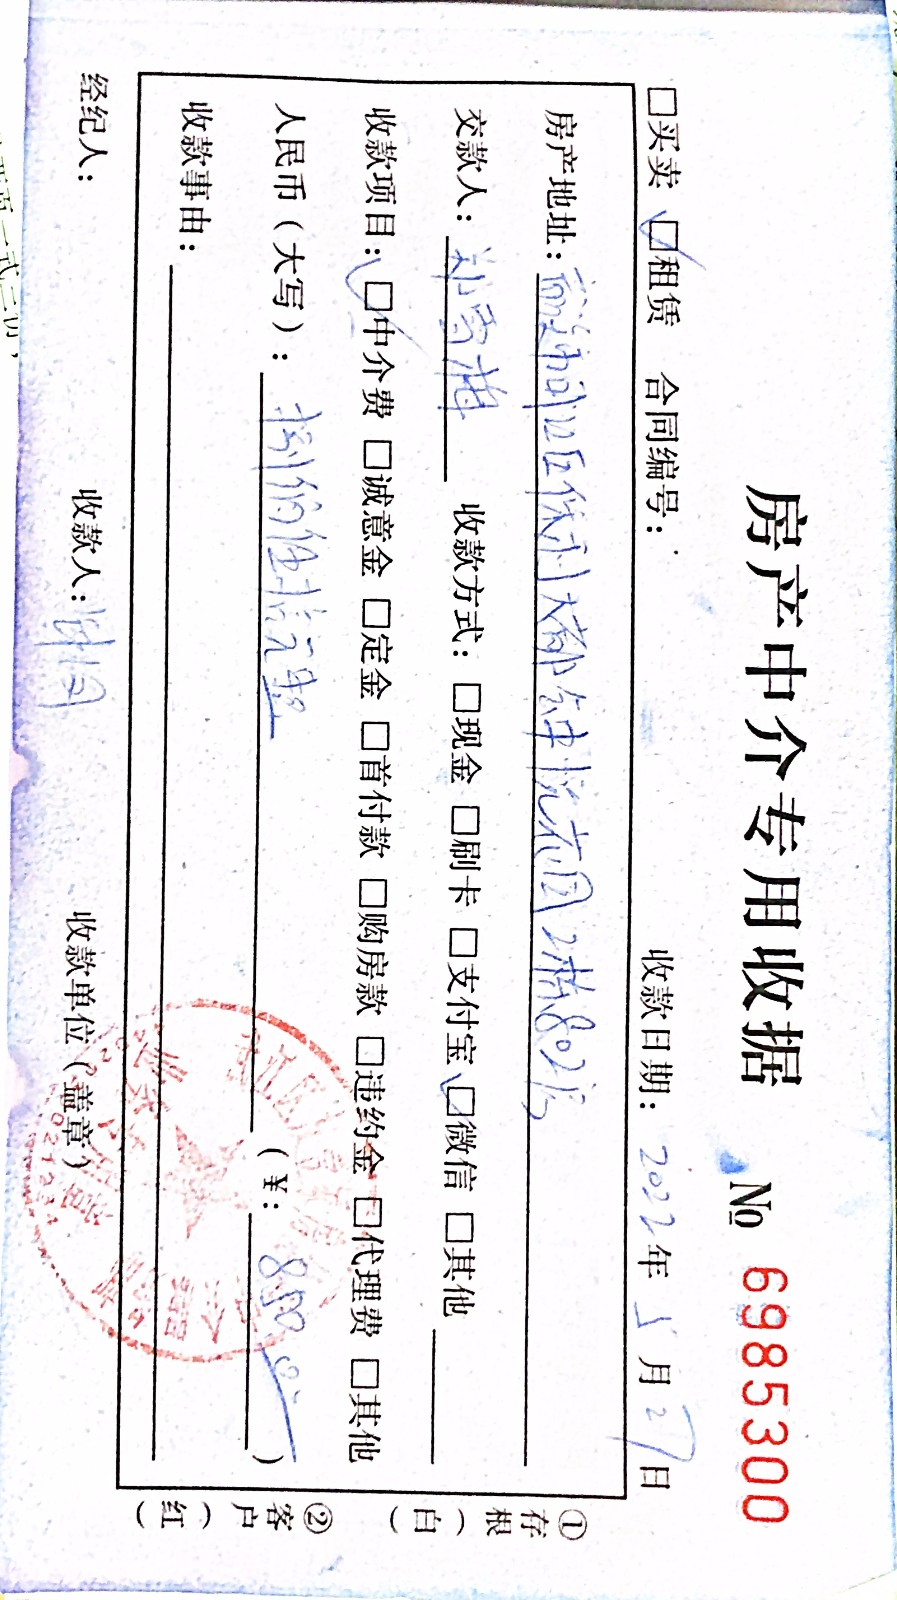 房产中介专用收据 № 6985300
□买卖 □租赁 合同编号： 收款日期：2022年5月27日
房产地址：大都会 花园2栋802房
交款人：郑雪梅 收款方式：□现金 □刷卡 □支付宝 □微信 □其他
收款项目：□中介费 □诚意金 □定金 □首付款 □购房款 □违约金 □代理费 □其他
人民币（大写）：捌佰伍拾元整 （¥：850 ）
收款事由：
经纪人： 收款人： 收款单位（盖章）
①存根（白）
②客户（红）